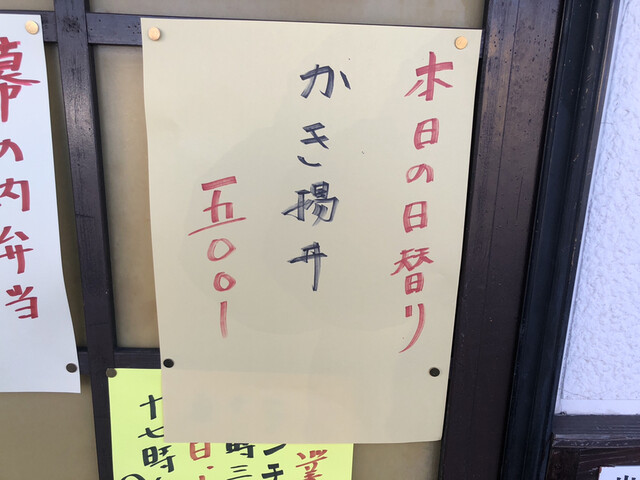 本日の日替り
かき揚丼
一五〇〇ー
幕の内弁当
業
ンチ
時三
日・
十七時